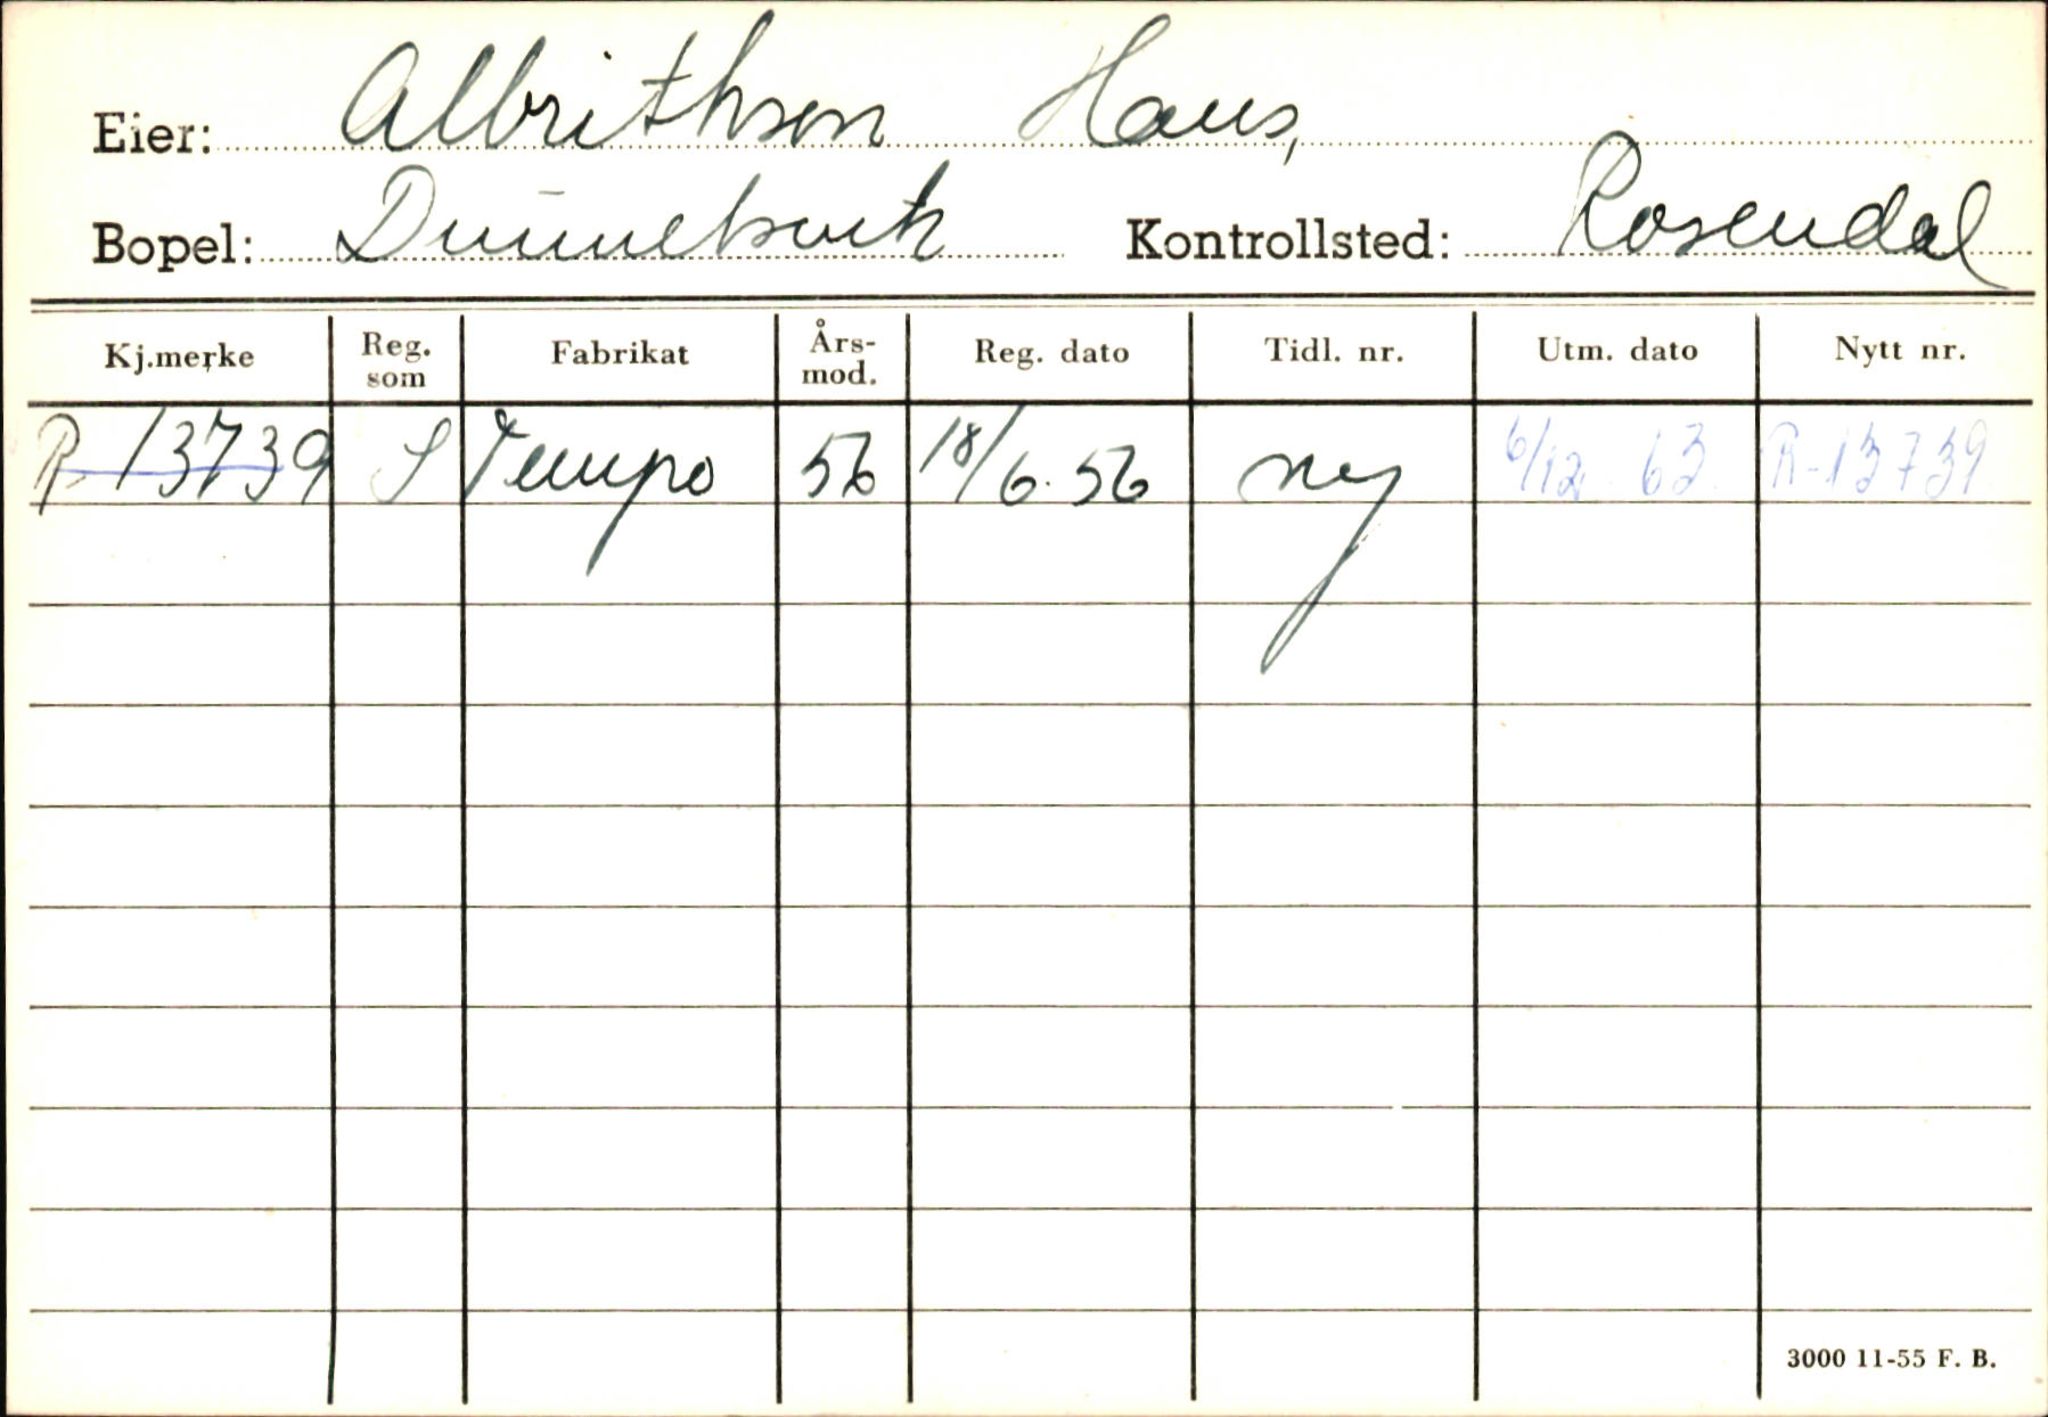 Eier: Albrithsen Hans,
Bopel: Kontrollsted: Rosendal
Kj.merke Reg. som Fabrikat Års-mod. Reg. dato Tidl. nr. Utm. dato Nytt nr.
R-13739 S Tempo 56 18/6.56 ny 6/12 63 R-13739
3000 11-55 F. B.